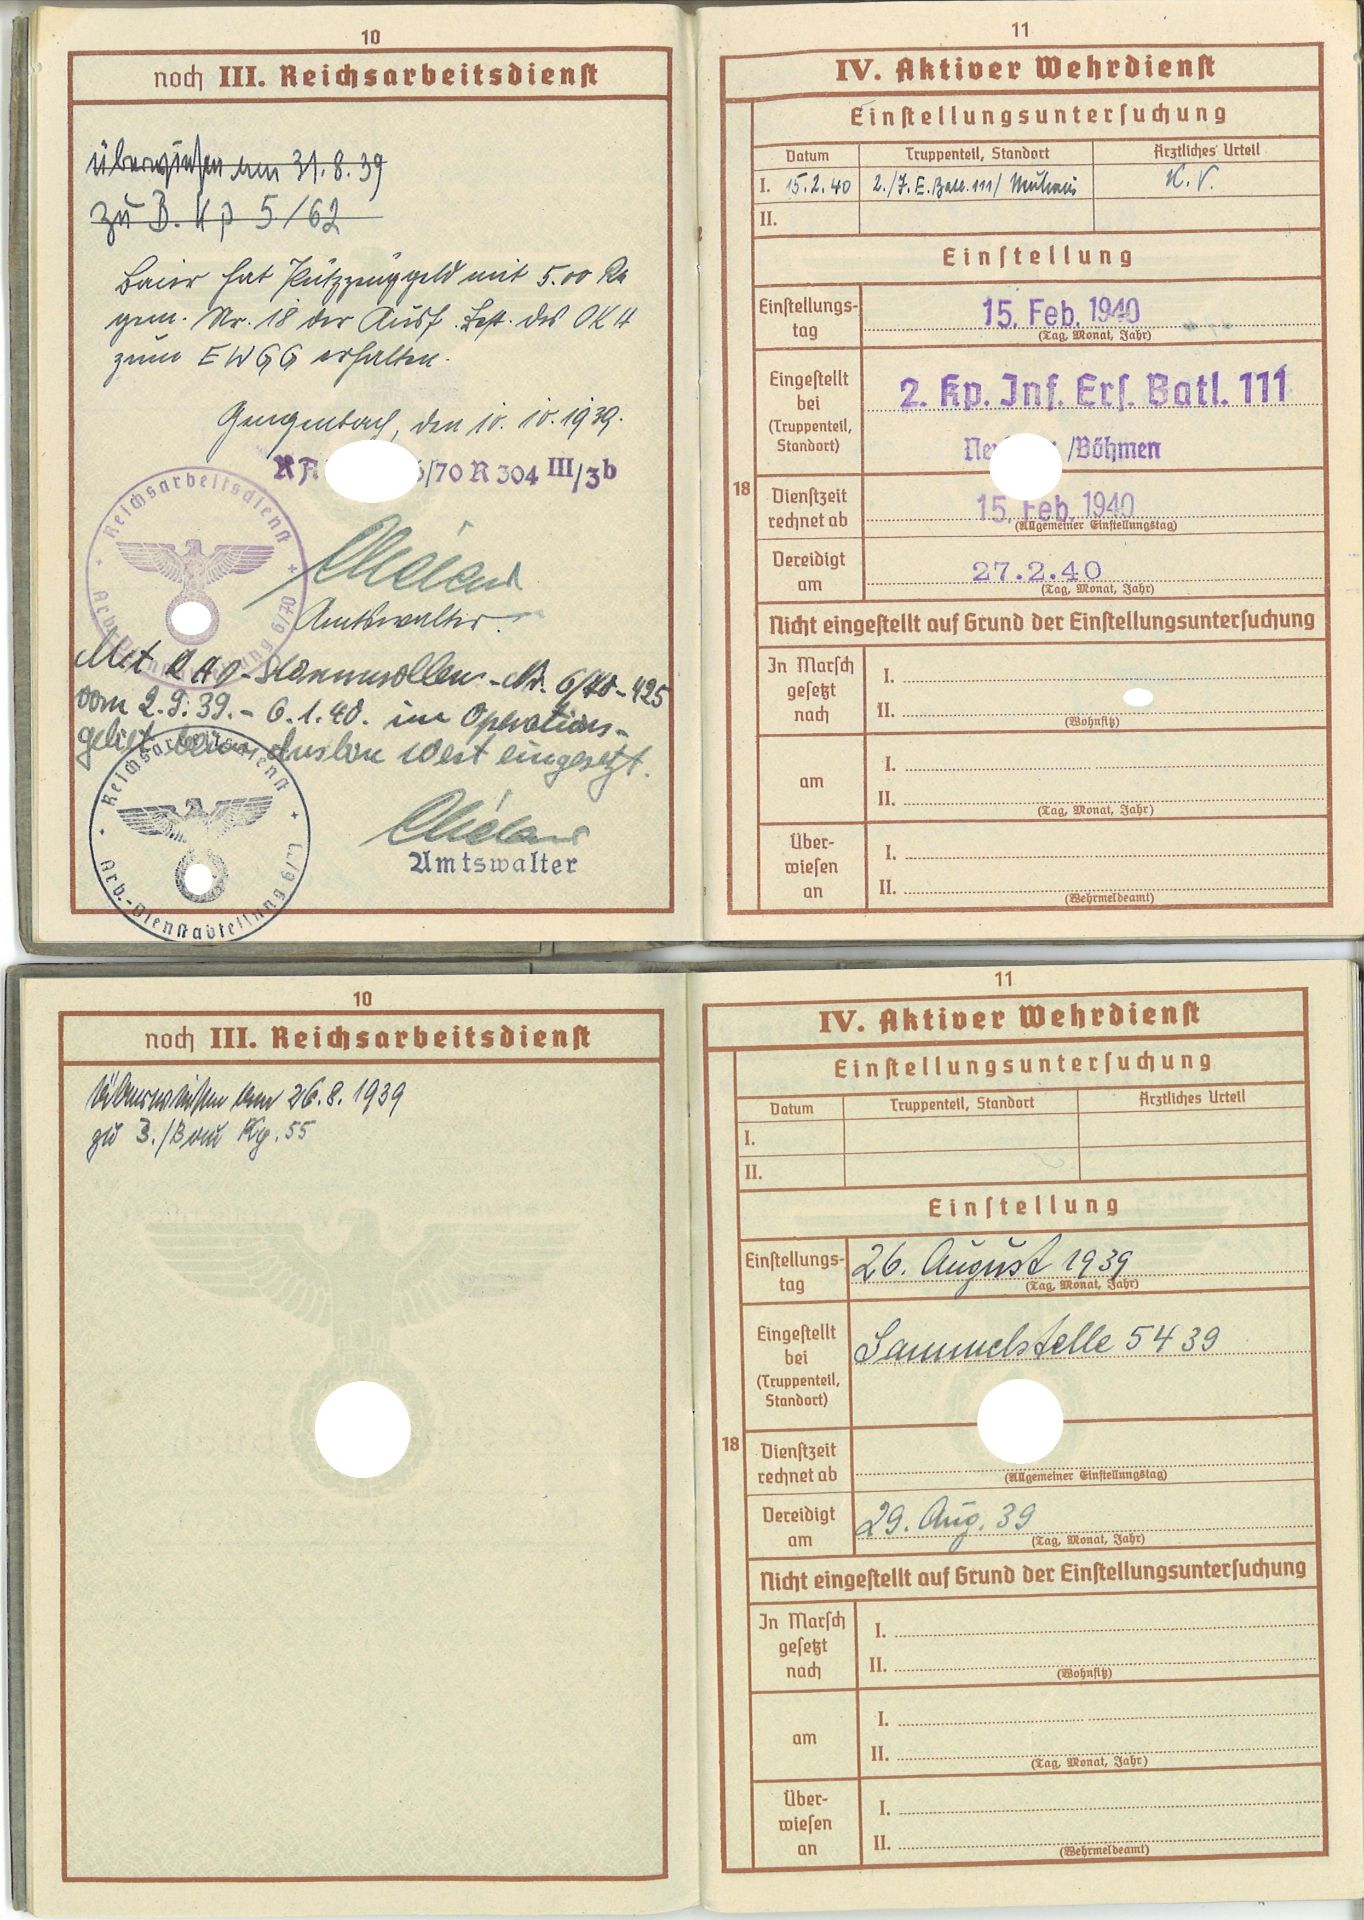 10
noch III. Reichsarbeitsdienst
überwiesen am 31.8.39
zu B. Kp 5/62
Baier hat Putzzeuggeld mit 5.00 RM
gem. Nr. 18 der Ausf. Best. des OKH
zum EWGG erhalten.
Gengenbach, den 10.10.1939.
6/70 R 304 III/3b
Reichsarbeitsdienst
Arb. Dienstabteilung 6/70
Amtswalter.
Mit RAD-Stammrollen-Nr. 6/70-425
vom 2.9.39.-6.1.40. im Operations-
gebiet beim Ausbau West eingesetzt.
Reichsarbeitsdienst
Arb.-Dienstabteilung 6/70
Amtswalter
11
IV. Aktiver Wehrdienst
Einstellungsuntersuchung
Datum Truppenteil, Standort Ärztliches Urteil
I. 15.2.40 2./J.E.Batl.111/ Neuhaus K.V.
II.
Einstellung
Einstellungs-
tag
15. Feb. 1940
(Tag, Monat, Jahr)
Eingestellt
bei
(Truppenteil,
Standort)
2. Kp. Inf. Ers. Batl. 111
/Böhmen
18
Dienstzeit
rechnet ab
15. Feb. 1940
(Allgemeiner Einstellungstag)
Vereidigt
am
27.2.40
(Tag, Monat, Jahr)
Nicht eingestellt auf Grund der Einstellungsuntersuchung
In Marsch
gesetzt
nach
I.
II.
(Wohnsitz)
am
I.
II.
(Tag, Monat, Jahr)
Über-
wiesen
an
I.
II.
(Wehrmeldeamt)
10
noch III. Reichsarbeitsdienst
Überwiesen am 26.8.1939
zu 3./Bau Kp. 55
11
IV. Aktiver Wehrdienst
Einstellungsuntersuchung
Datum Truppenteil, Standort Ärztliches Urteil
I.
II.
Einstellung
Einstellungs-
tag
26. August 1939
(Tag, Monat, Jahr)
Eingestellt
bei
(Truppenteil,
Standort)
Sammelstelle 5439
18
Dienstzeit
rechnet ab
(Allgemeiner Einstellungstag)
Vereidigt
am
29. Aug. 39
(Tag, Monat, Jahr)
Nicht eingestellt auf Grund der Einstellungsuntersuchung
In Marsch
gesetzt
nach
I.
II.
(Wohnsitz)
am
I.
II.
(Tag, Monat, Jahr)
Über-
wiesen
an
I.
II.
(Wehrmeldeamt)